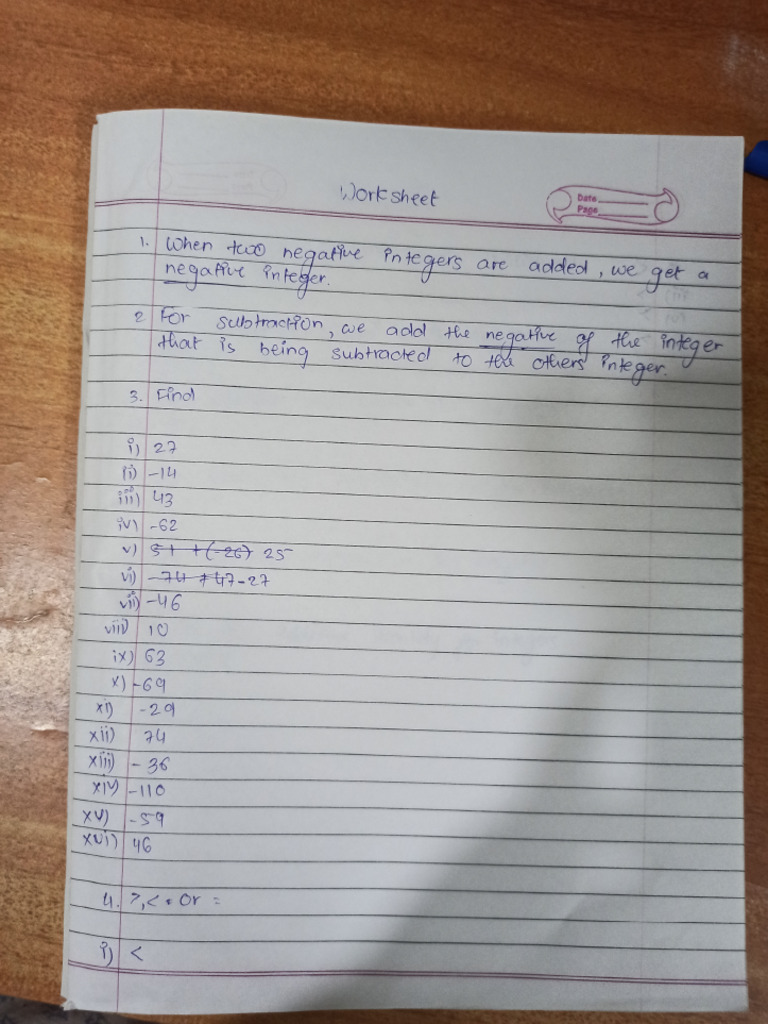 Worksheet
Date
Page
1. When two negative integers are added, we get a
negative integer.
2 For subtraction, we add the negative of the integer
that is being subtracted to the others integer.
3. Find
i) 27
ii) -14
iii) 43
iv) -62
v) 51 + (-26) 25
vi) -74 + 47 -27
vii) -46
viii) 10
ix) 63
x) -69
xi) -29
xii) 74
xiii) - 36
xiv) -110
xv) -59
xvi) 46
4. >, < . Or =
i) <